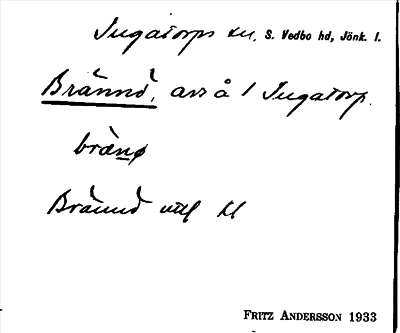 Ingatorps sn, S. Vedbo hd, Jönk. l.
Brännö, avs å 1 Ingatorp.
bränø
Brännö utl kl
FRITZ ANDERSSON 1933